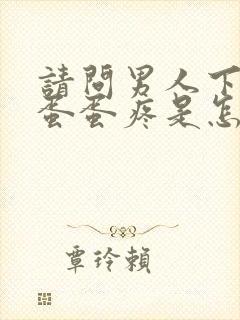 請問男人下
蛋蛋疼是怎
覃玲賴